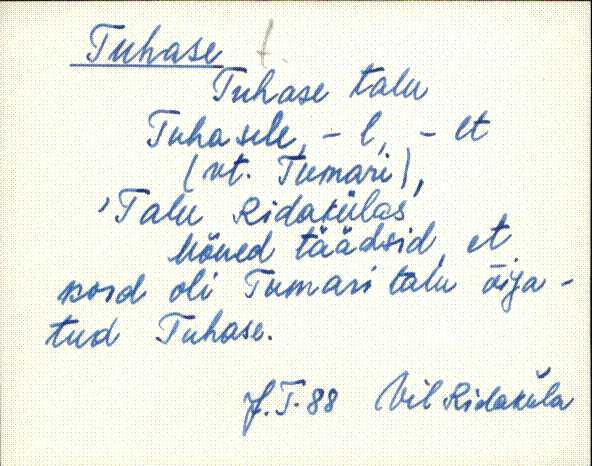 Tuhase t.
Tuhase talu
Tuhasele, -l, -lt
(vt. Tumari),
'Talu Ridakülas'
Mõned täädsid, et
kord oli Tumari talu õija-
tud Tuhase.
J.T. 88 Vil Ridaküla